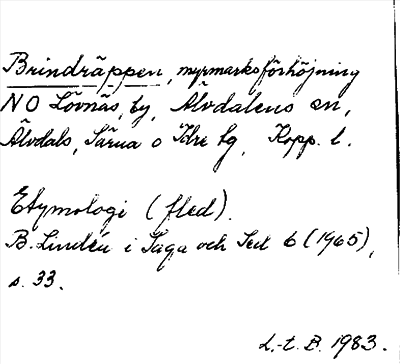 Brindräppen, myrmarksförhöjning
NO Lövnäs, by, Älvdalens sn,
Älvdals, Särna o Idre tg, Kopp. l.
Etymologi (fled).
B. Lindén i Saga och Sed 6 (1965),
s. 33.
L.-t. B. 1983.